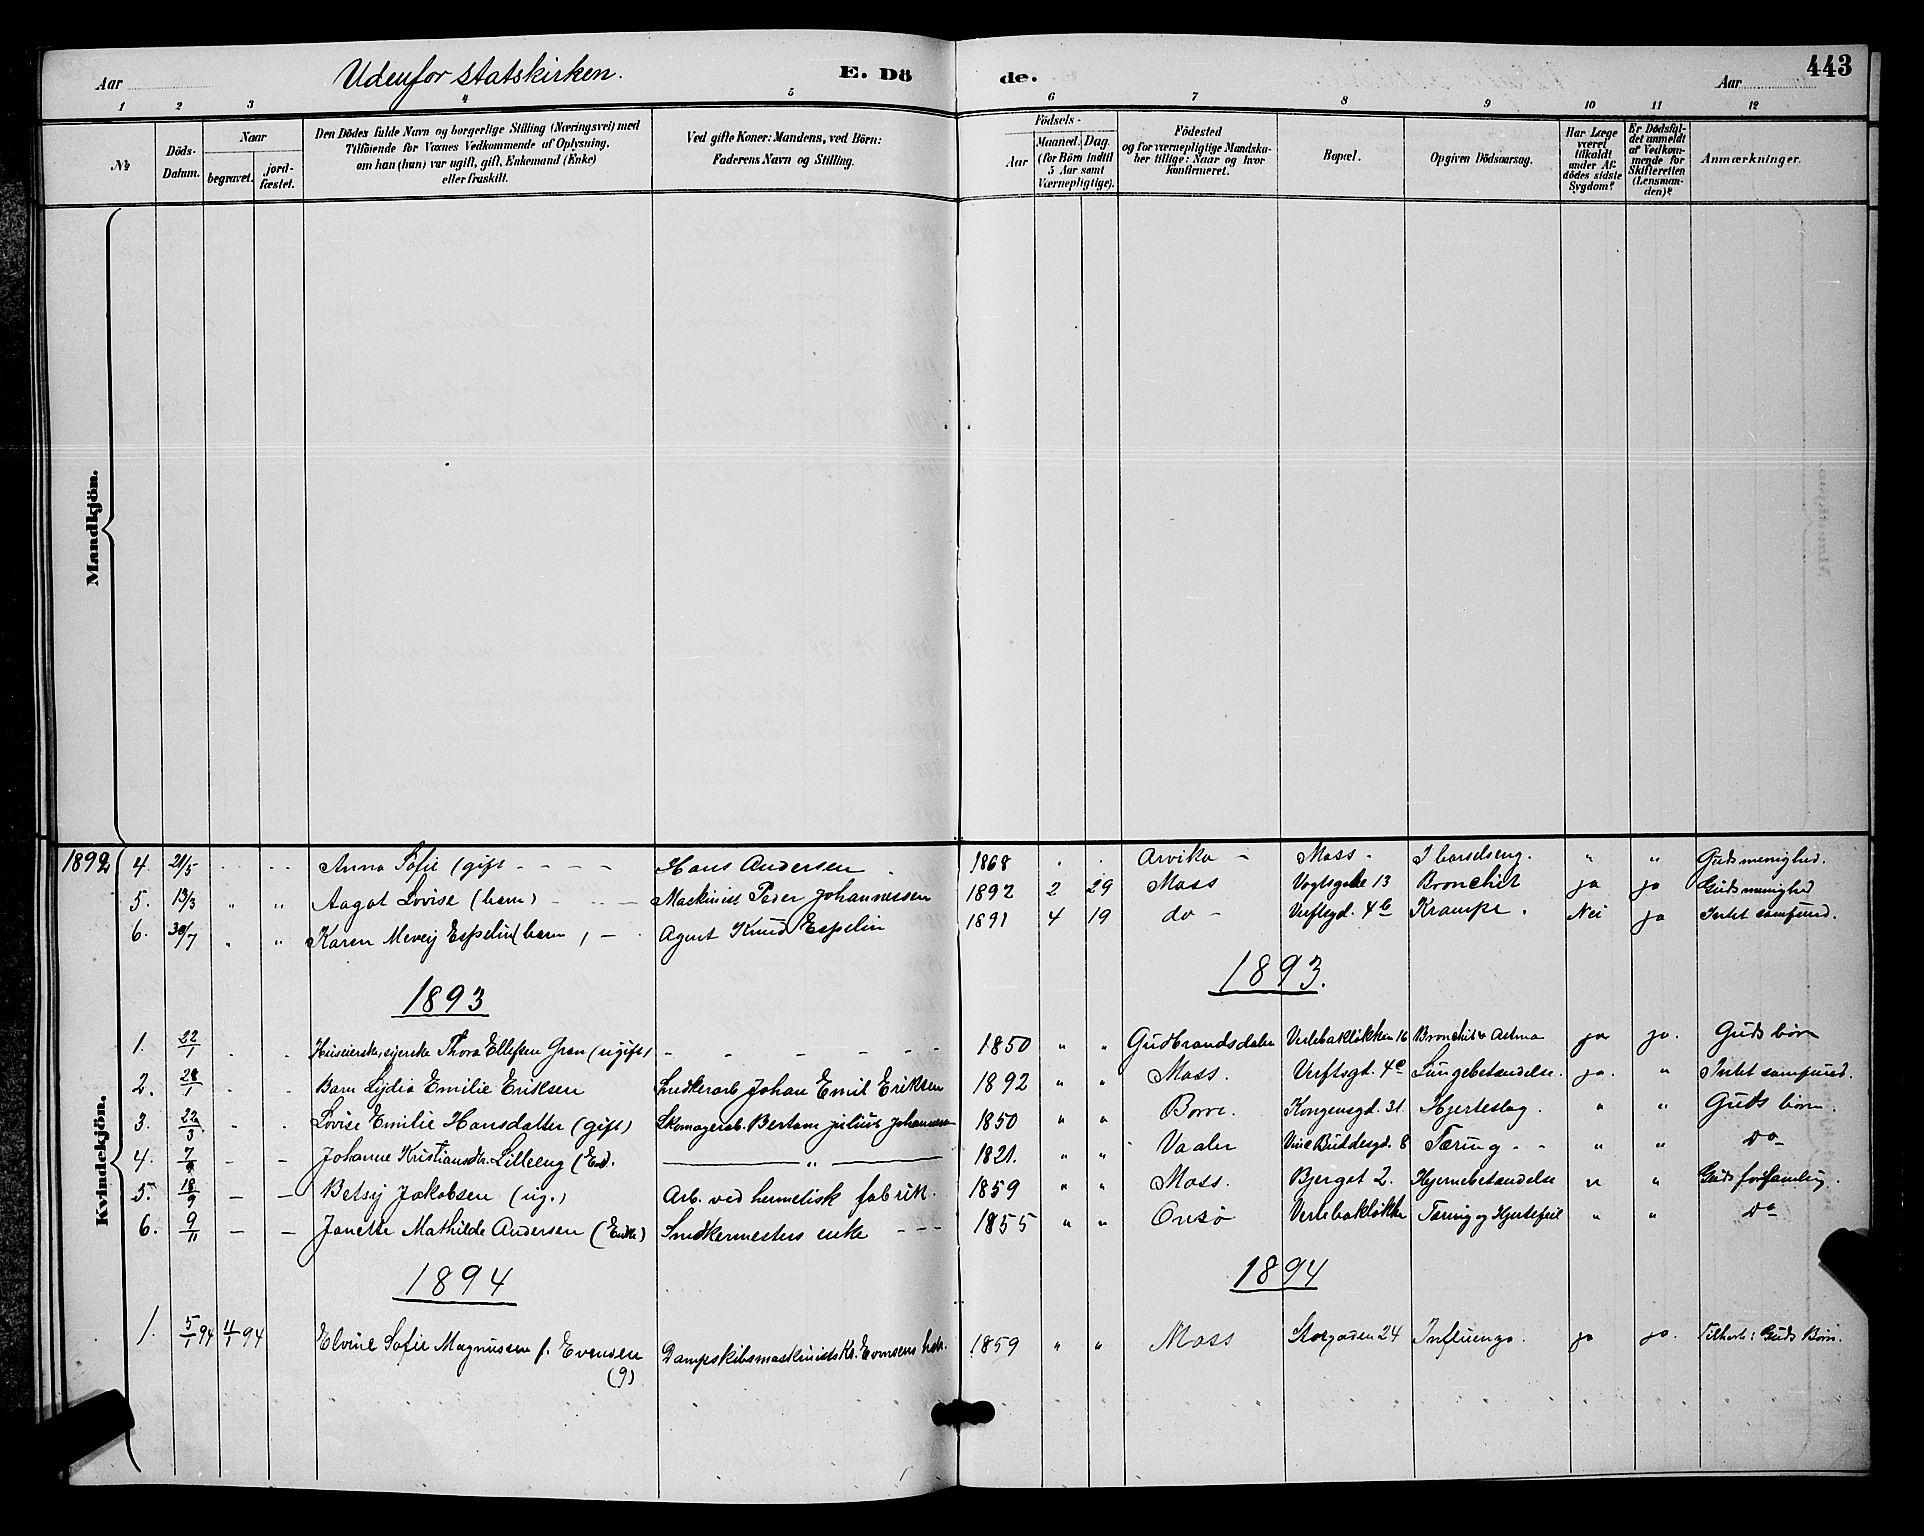 443
Aar Udenfor statskirken. E. Dö de. Aar
1 2 3 4 5 6 7 8 9 10 11 12
No
Döds-Datum.
Naar
begravet.
jord-fæstet.
Den Dödes fulde Navn og borgerlige Stilling (Næringsvei) med
Tilföiende for Voxnes Vedkommende af Oplysning,
om han (hun) var ugift, gift, Enkemand (Enke)
eller fraskilt.
Ved gifte Koner: Mandens, ved Börn:
Faderens Navn og Stilling.
Födsels-
Aar
Maaned. Dag
(for Börn indtil
5 Aar samt
Værnepligtige).
Födested
og for værnepligtige Mandska-
ber tillige: Naar og hvor
konfirmeret.
Bopæl.
Opgiven Dödsaarsag.
Har Læge
været
tilkaldt
under Af-
dödes sidste
Sygdom?
Er Dödsfal-
det anmeldt
af Vedkom-
mende for
Skifteretten
(Lensman-
den)?
Anmærkninger.
Mandkjön.
Kvindekjön.
1892 4. 21/5 Anna Sofie (gift Hans Andersen 1868 Arvika Moss I barselseng. " " Guds menighed.
5. 13/3 " " Aagot Lovise (barn) Maskinist Peder Johannessen 1892 2 29 Moss Vogtsgade 13 Bronchit ja ja Guds menighed
6. 30/7 " " Karen Espelin (barn Agent Knud Espelin 1891 4 19 do Verftsgd. 4b Krampe. Nei ja Intet samfund.
1893 1893.
1. 22/1 Thora Ellefsen Gran (ugift) 1850 " " Gudbrandsdalen Verlebakløkken 16 Bronchit & Astma ja ja. Guds børn
2. 28/1 Barn Lydia Emilie Eriksen Snedkerarb. Johan Emil Eriksen 1892 " " Moss. Verftsgd. 4a Lungebetændelse. ja. " Intet samfund.
3. 22/3 Lovise Emilie Hansdatter (gift) Skomagerarb. Julius Johansen 1850 " " Borre. Kongensgd. 31 Hjerteslag. " " Guds børn.
4. Johanne Kristiansdtr. Lilleeng (E 1821. " " Vaaler 8 Tæring " " Do
5. 18/9 Betsy Jakobsen (ug.) Arb. ved hermetisk fabrik. 1859 " " Moss. Bjerget 2. Hjernebetændelse " " Guds forsamling.
6. 9/11 Janette Mathilde Andersen (Enke) Snedkermesters enke 1855 " " Onsø Verlebakløkken Tæring og Hjertefeil " " Do
1894 1894
1. 5/1 94 11/1 94 Elvine Sofie Magnussen f. Evensen (g) Dampskibsmaskinist Kr. Evensens 1859 " " Moss Storgaden 24 Influenza. ja ja. Tilhørte: Guds Børn.